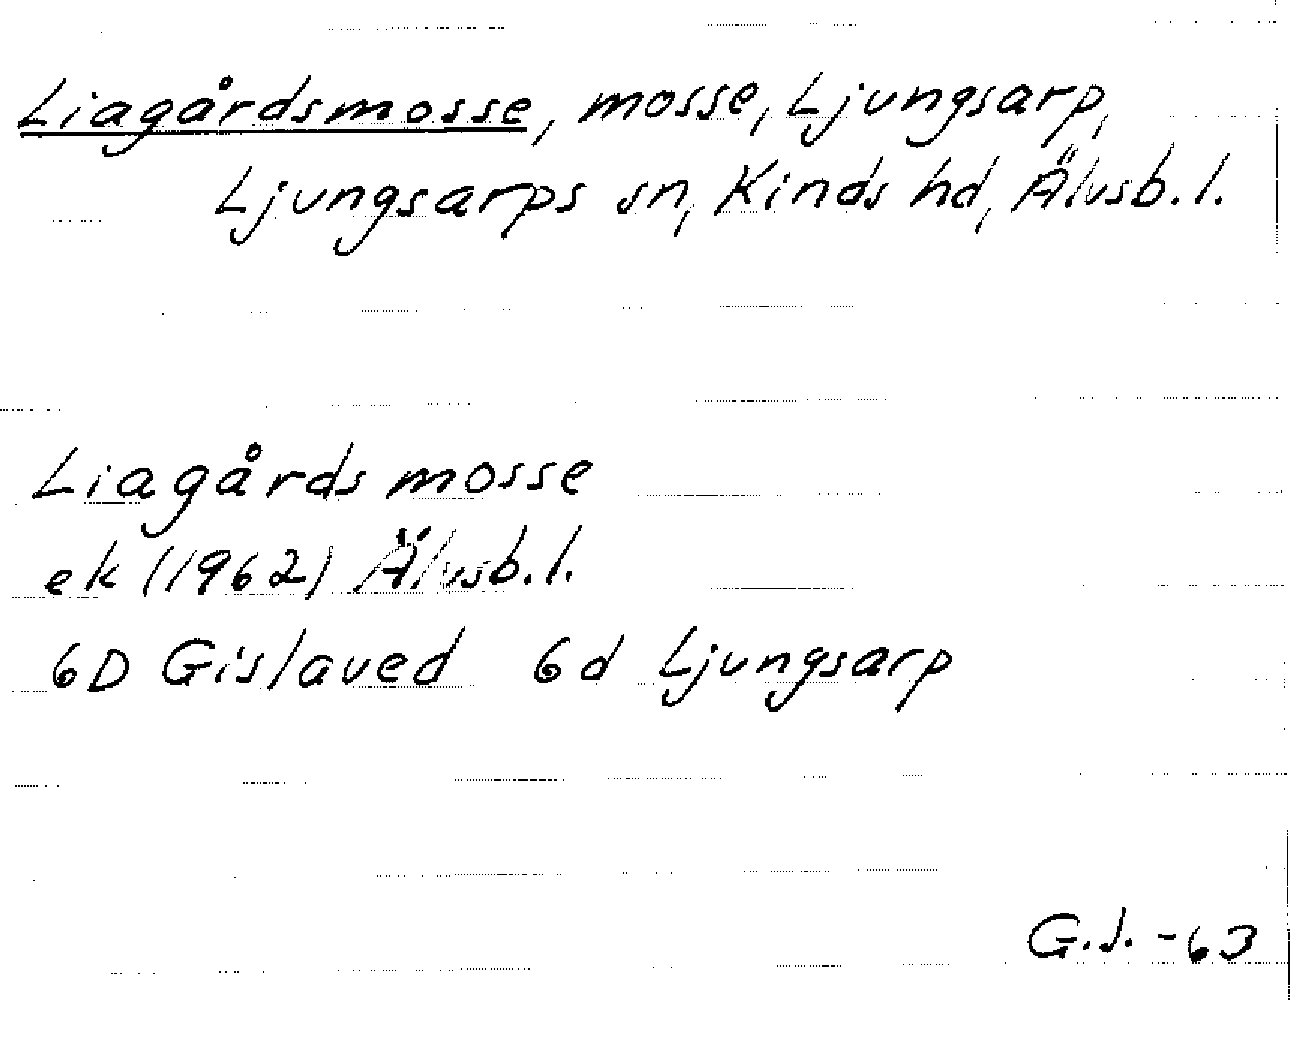 Liagårdsmosse, mosse, Ljungsarp,
Ljungsarps sn, Kinds hd, Älvsb. l.
Liagårds mosse
ek (1962) Älvsb. l.
6D Gislaved 6d Ljungsarp
G.J. -63